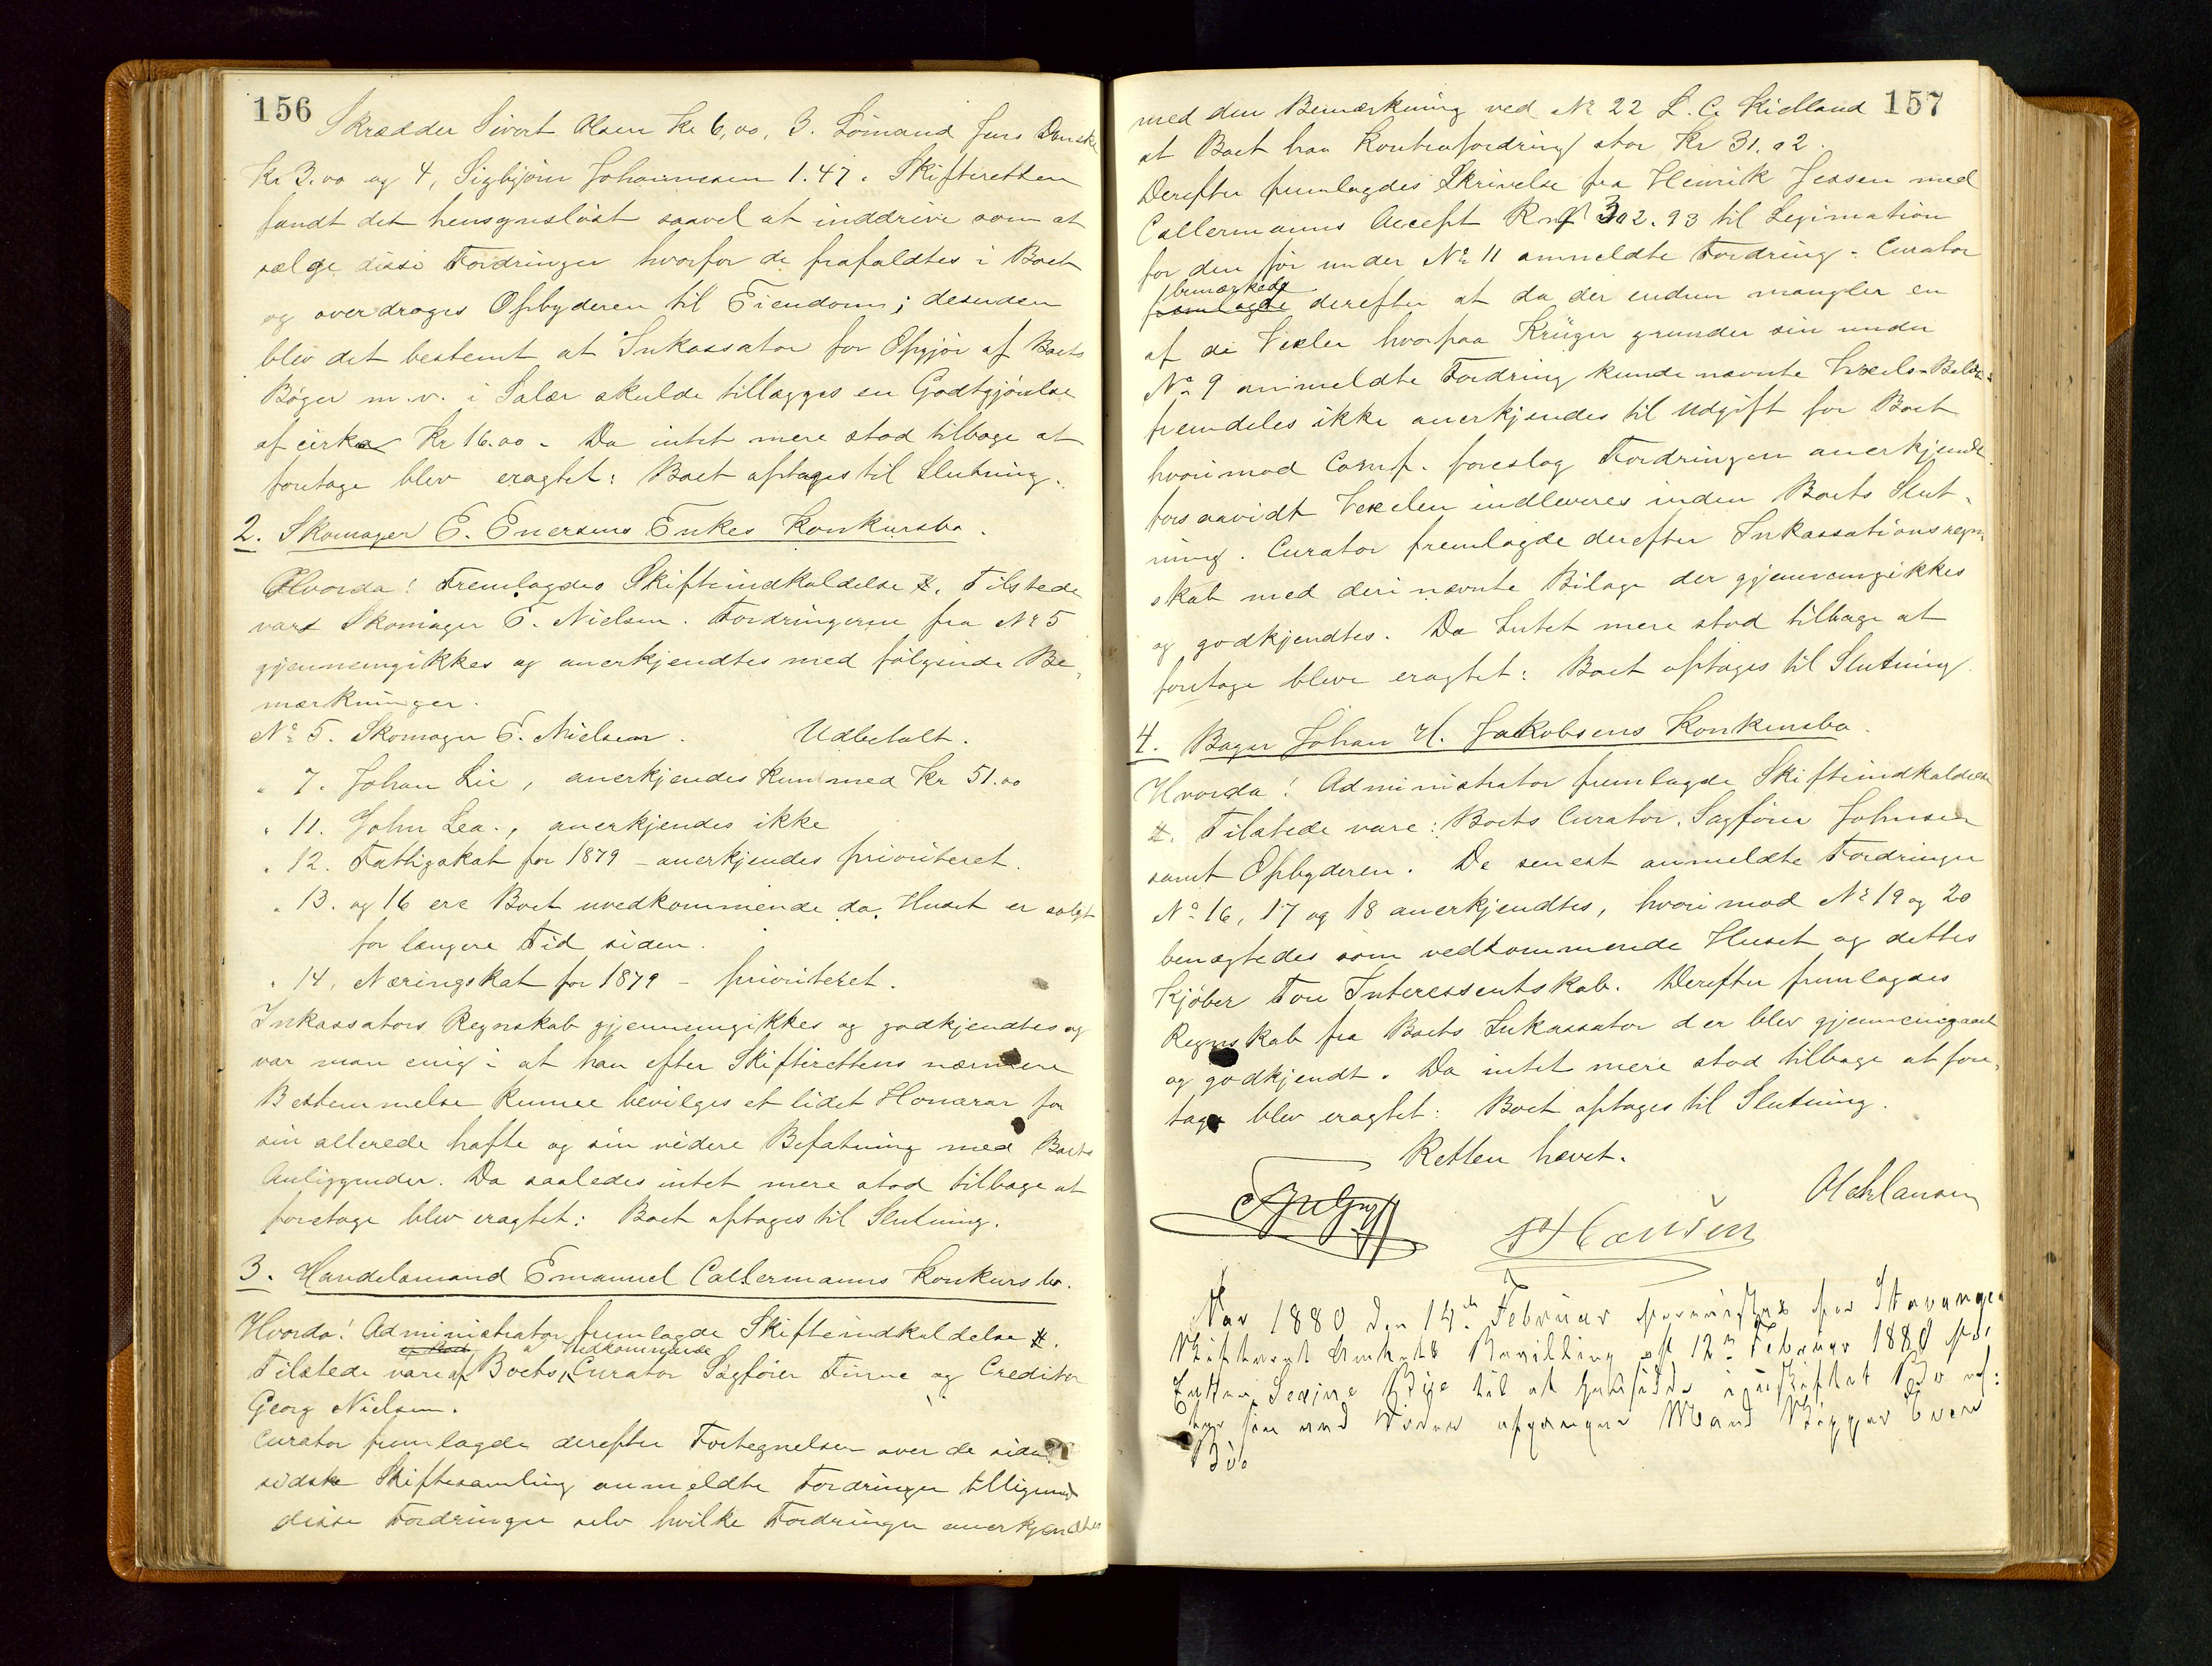 156
Skrædder Sivert Olsen Kr 6,00, 3. Sømand Jens Danske
Kr 3.00 og 4, Sigbjørn Johannesen 1.47. Skifteretten
fandt det hensynsløst saavel at inddrive som at
sælge disse Fordringer hvorfor de frafaldtes i Boet
og overdroges Opbyderen til Eiendom; desuden
blev det bestemt at Inkassator for Opgjør af Boets
Bøger m.v. i Salær skulde tillægges en Godtgjørelse
af cirka Kr 16.00 - Da intet mere stod tilbage at
foretage blev eragtet: Boet optages til Slutning.
2. Skomager E. Enersens Enkes Konkursbo.
Hvorda! Fremlagdes Skifteindkaldelse #. Tilstede
var Skomager E. Nielsen. Fordringerne fra No 5
gjennemgikkes og anerkjendtes med følgende Be-
mærkninger.
No 5. Skomager E. Nielsen. Udbetalt.
" 7. Johan Lie, anerkjendes kun med Kr 51.00
" 11. John Lea., anerkjendes ikke
" 12. Fattigskat for 1879 - anerkjendes prioriteret.
" 13. og 16 ere Boet uvedkommende da Huset er solgt
for længere Tid siden.
" 14, Næringskat for 1879 - prioriteret.
Inkassators Regnskab gjennemgikkes og godkjendtes og
var man enig i at han efter Skifterettens nærmere
Bestemmelse kunne bevilges et lidet Honorar for
sin allerede hafte og sin videre Befatning med Boets
Anliggender. Da saaledes intet mere stod tilbage at
foretage blev eragtet: Boet optages til Slutning.
3. Handelsmand Emanuel Callermanns Konkursbo.
Hvorda! Administrator fremlagde Skifteindkaldelse #.
Vedkommende
Tilstede vare af Boets, Curator Sagfører Finne og Creditor
Georg Nielsen.
Curator fremlagde derefter Fortegnelsen over de siden
sidste Skiftesamling anmeldte Fordringer tilligemed
disse Fordringer selv hvilke Fordringer anerkjendtes
157
med den Bemærkning ved No 22 L. C. Kielland
at Boet har Kontrafordring stor Kr 31.02.
Derefter fremlagdes Skrivelse fra Heinrik Jessen med
Callermanns Accept Rmf 302.93 til Legimation
for den før under No 11 anmeldte Fordring - Curator
bemærkede
fremlagde derefter at da der endnu mangler en
af de Vexler hvorpaa Krüger grunder sin under
No 9 anmeldte Fordring kunde nævnte Vexels-Beløb
fremdeles ikke anerkjendes til Udgift for Boet
hvorimod Comp. foreslog Fordringen anerkjendt
forsaavidt Vexelen indleveres inden Boets Slut-
ning. Curator fremlagde derefter Inkassationsregn-
skab med deri nævnte Bilage der gjennemgikkes
og godkjendtes. Da Intet mere stod tilbage at
foretage bleve eragtet: Boet optages til Slutning
4. Bager Johan H. Jakobsens Konkursbo.
Hvorda! Administrator fremlagde Skifteindkaldelse
#. Tilstede vare: Boets Curator, Sagfører Johnsen
samt Opbyderen. De senest anmeldte Fordringer
No 16, 17 og 18 anerkjendtes, hvorimod No 19 og 20
benægtedes som vedkommende Huset og dettes
Kjøber Tou Interessentskab. Derefter fremlagdes
Regnskab fra Boets Inkassator der blev gjennemgaaet
og godkjendt. Da intet mere stod tilbage at fore-
tage blev eragtet: Boet optages til Slutning.
Retten hævet.
Hansen
Aar 1880 den 14de Februar forevistes for Stavanger
Skifteret Amtets Bevilling af 12te Februar 1880 for
Enken Serine Bøe til at hensidde i uskiftet Bo ef-
ter sin ved Døden afgangne Mand Skipper Sven
Bøe